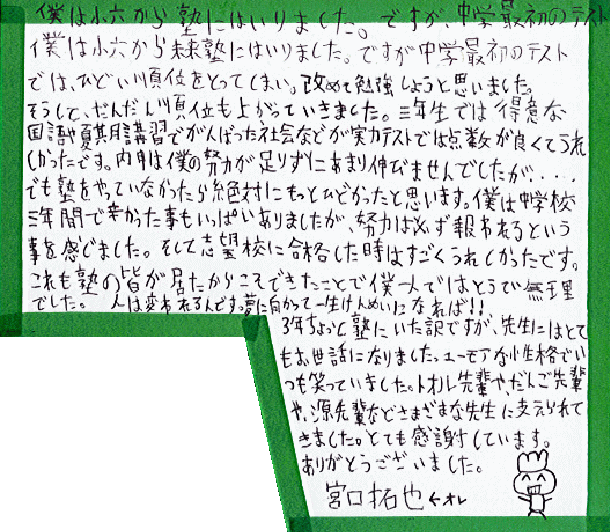 僕は小六から塾にはいりました。ですが、中学最初のテスト
僕は小六から未来塾にはいりました。ですが中学最初のテスト
では、ひどい順位をとってしまい。改めて勉強しようと思いました。
そうして、だんだん順位も上がっていきました。三年生では得意な
国語や夏期講習でがんばった社会などが実力テストでは点数が良くてうれ
しかったです。内申は僕の努力が足りずにあまり伸びませんでしたが・・・
でも塾をやっていなかったら絶対にもっとひどかったと思います。僕は中学校
三年間で辛かった事もいっぱいありましたが、努力は必ず報われるという
事を感じました。そして志望校に合格した時はすごくうれしかったです。
これも塾の皆が居たからこそできたことで僕一人ではとうてい無理
でした。 人は変われるんです。夢に向かって一生けんめいになれば!!
3年ちょっと塾にいた訳ですが、先生にはとて
もお世話になりました。ユーモアな性格でい
つも笑っていました。トオル先輩や、だんご先輩
や、源先輩などさまざまな先生に支えられて
きました。とても感謝しています。
ありがとうございました。
宮口拓也←オレ